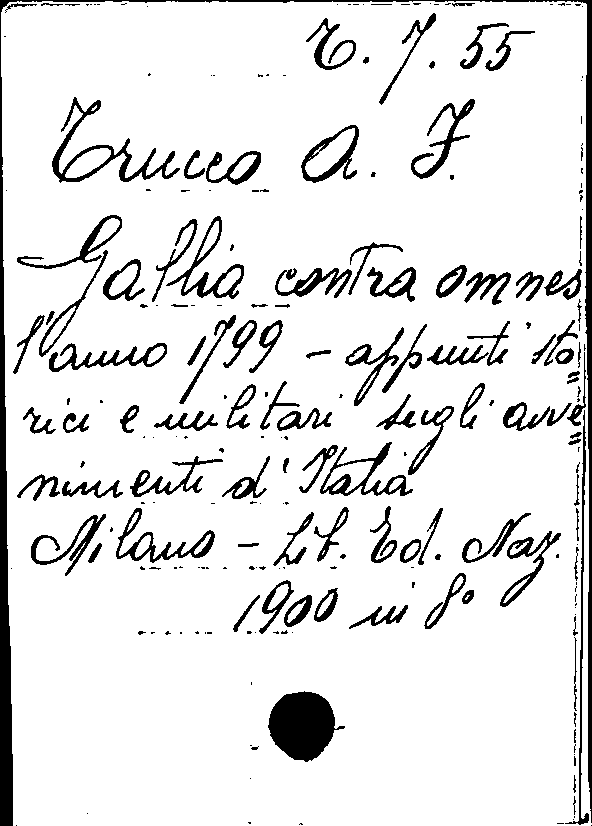 T. 7. 55
Trucco A. F.
Gallia contra omnes
l'anno 1799 - appunti sto=
rici e militari sugli avve=
nimenti d'Italia
Milano - Lib. Ed. Naz.
1900 in 8°